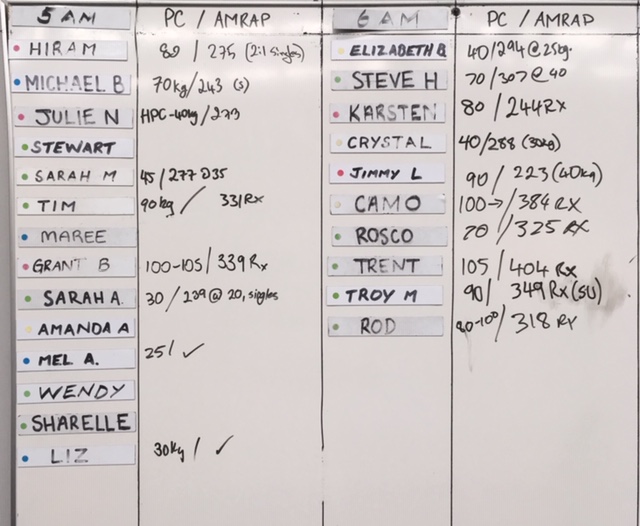 5 AM PC / AMRAP
HIRAM 80 / 275 (2:1 singles)
MICHAEL B 70kg/243 (s)
JULIE N HPC-40kg/273
STEWART
SARAH M 45/277 @35
TIM 90kg / 331 Rx
MAREE
GRANT B 100-105/339 Rx
SARAH A. 30 / 239 @ 20, singles
AMANDA A
MEL A. 25/ ✓
WENDY
SHARELLE
LIZ 30kg / ✓
6 AM PC / AMRAP
ELIZABETH B 40/294 @ 25kg.
STEVE H 70/307 @ 40
KARSTEN 80 / 244 RX
CRYSTAL 40/288 (30kg)
JIMMY L 90 / 223 (40kg)
CAMO 100→/384 RX
ROSCO 70 / 325 RX
TRENT 105 / 404 Rx
TROY M 90/ 349 Rx (SU)
ROD /318 RX